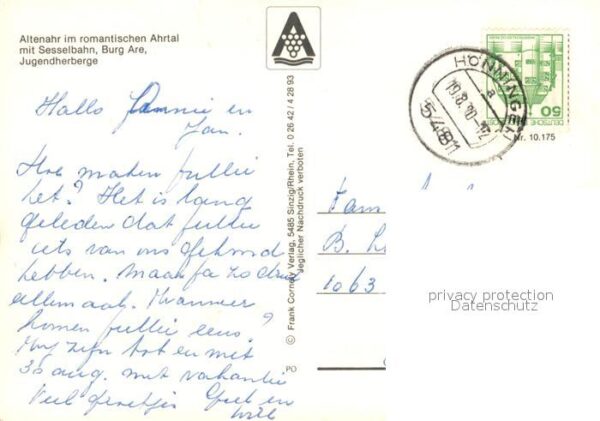 Altenahr im romantischen Ahrtal
mit Sesselbahn, Burg Are,
Jugendherberge
Hallo Jannie en
Jan.
Hoe maken jullie
het? Het is lang
geleden dat jullie
iets van ons gehoord
hebben. Maar ja zo druk
allemaal. Wanneer
komen jullie eens?
Wij zijn tot en met
30 aug. met vakantie
Veel groetjes
© Frank Cornely Verlag, 5485 Sinzig/Rhein, Tel. 0 26 42 / 4 28 93
Jeglicher Nachdruck verboten
PO
HÖNNINGEN
5481
50
DEUTSCHE
Nr. 10.175
Fam
B.
1063
privacy protection
Datenschutz